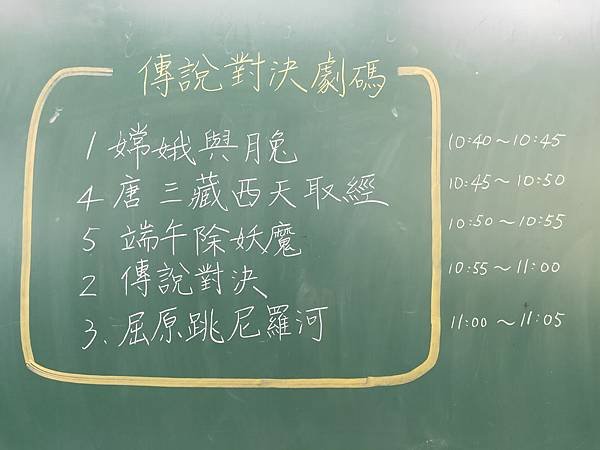 傳說對決劇碼
1 嫦娥與月兔 10:40～10:45
4 唐三藏西天取經 10:45～10:50
5 端午除妖魔 10:50～10:55
2 傳說對決 10:55～11:00
3. 屈原跳尼羅河 11:00～11:05